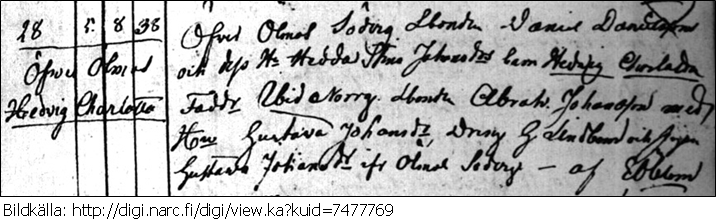 28 5. 8 38
Öfver Olmos
Hedvig Charlotta
Öfver Olmos Söderg. Lbonden Daniel Danielsson
och dess H. Hedda Stina Johansdr barn Hedvig Charlotta
Faddr. Ubid Norrg. Lbonden Abrah. Johansson med
Hon Gustava Johansdr, Dreng G Lindbom och Pigan
Gustava Johansdr ifr Olmos Söderg. – af
Bildkälla: http://digi.narc.fi/digi/view.ka?kuid=7477769